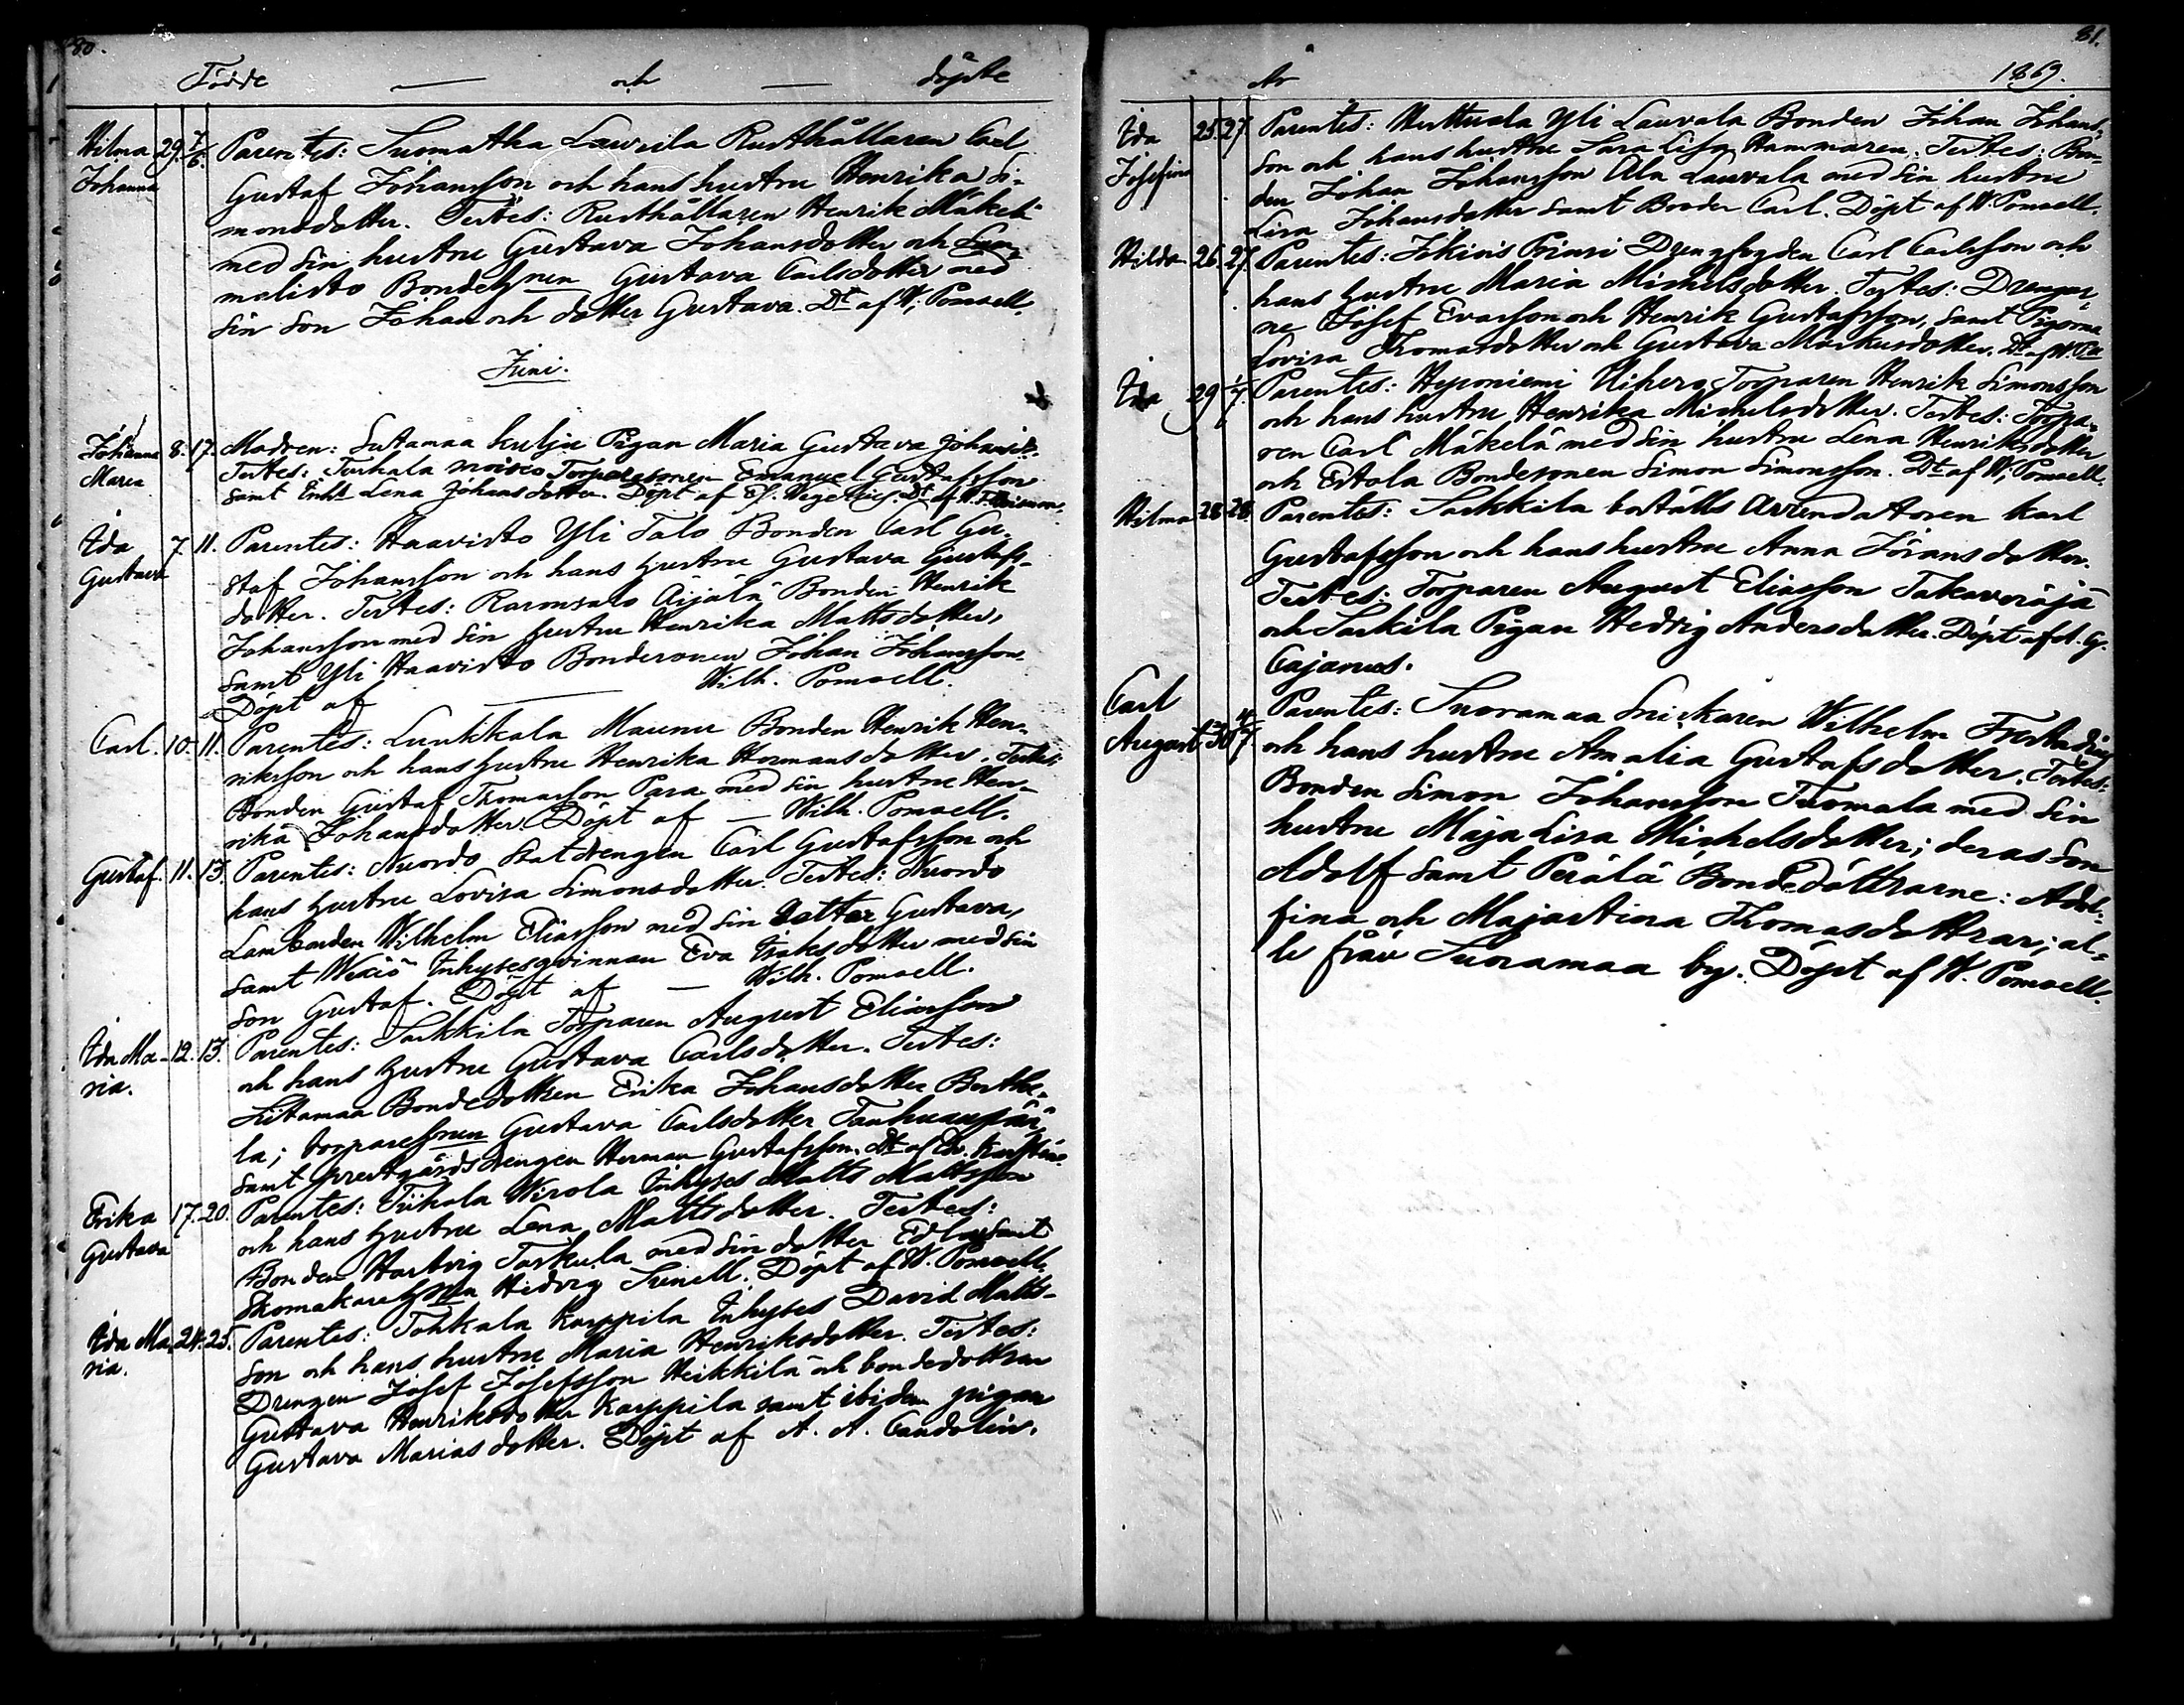 80.
Födde — och — döpte
Hilma 29. 1/6. Parentes: Suomatka Laurila Rusthållaren Carl
Johanna Gustaf Johansson och hans hustru Henrika Si-
monsdotter. Testes: Rusthållaren Henrik Mäkelä
med sin hustru Gustava Johansdotter och
Bondehnen Gustava Carlsdotter med
sin son Johan och dotter Gustava. Dt af W. Pomoell.
Juni.
Johanna 8. 17. Modren: Satamaa Pigan Maria Gustava Johansdr.
Maria Testes: Turkala moisco Torparesonen Emanuel Gustafsson
samt Enk. Lena Johansdotter. Döpt af
Ida 7. 11. Parentes: Haavisto Yli Talo Bonden Carl Gu-
Gustava staf Johansson och hans hustru Gustava Gustafs-
dotter. Testes: Raronsalo Äijälä Bonden Henrik
Johansson med sin hustru Henrika Mattsdotter,
samt Yli Haavisto Bondesonen Johan Johansson.
Döpt af — Wilh. Pomoell.
Carl. 10. 11. Parentes: Lunkkala Maunu Bonden Henrik Hen-
riksson och hans hustru Henrika Hermansdotter. Testes:
Bonden Gustaf Thomasson Para med sin hustru Hen-
rika Johansdotter. Döpt af — Wilh. Pomoell.
Gustaf. 11. 13. Parentes: Nuordo Statdrengen Carl Gustafsson och
hans hustru Lovisa Simonsdotter. Testes: Nuordo
Lambonden Wilhelm Eliasson med sin dotter Gustava,
samt Wexiö Inhyses qvinnan Eva Isaksdotter med sin
son Gustaf. Döpt af — Wilh. Pomoell.
Ida Ma- 12. 13. Parentes: Sarkkila Torparen August Eliasson
ria. och hans hustru Gustava Carlsdotter. Testes:
Liitamaa Bondedottren Erika Johansdotter Berthe-
la; torparehnen Gustava Carlsdotter
samt prestgårdsdrengen Herman Gustafsson. Dt af
Erika 17. 20. Parentes: Tiikala Wirola Inhyses Matts Mattsson
Gustava och hans hustru Lena Mattsdotter. Testes:
Bonden Hartvig Torkula med sin dotter Edla samt
Skomakarehnen Hedvig Sunell. Döpt af W. Pomoell.
Ida Ma- 24. 25. Parentes: Tohkala Karppila Inhyses David Matts-
ria. son och hans hustru Maria Henriksdotter. Testes:
Drengen Josef Josefsson Heikkilä och bondedottren
Gustava Henriksdotter Karppila samt ibidem pigan
Gustava Mariasdotter. Döpt af A. A. Candolin.
81.
År 1869.
Ida 25. 27. Parentes: Herttuala Yli Lauvala Bonden Johan Johans-
Josefina son och hans hustru Sara Lisa Hammaren. Testes: Bon-
den Johan Johansson Ala Lauvala med sin hustru
Lisa Johansdotter samt Broder Carl. Döpt af W. Pomoell.
Hilda 26. 27. Parentes: Jokiois Prinsi Drengfogden Carl Carlsson och
hans hustru Maria Michelsdotter. Testes: Drengar-
ne Josef Evasson och Henrik Gustafsson, samt Pigorna
Lovisa Thomasdotter och Gustava Markusdotter. Dt af W. P.
Ida 29 1/7. Parentes: Heponiemi Uihero Torparen Henrik Simonsson
och hans hustru Henrika Michelsdotter. Testes: Torpa-
ren Carl Mäkelä med sin hustru Lena Henriksdotter
och Ertola Bondesonen Simon Simonsson. Dt af W. Pomoell.
Hilma 28 28. Parentes: Sarkkila boställs Arrendatoren Karl
Gustafsson och hans hustru Anna Göransdotter.
Testes: Torparen August Eliasson Takaveräjä
och Sarkila Pigan Hedvig Andersdotter. Döpt af A. G.
Cajanus.
Carl Parentes: Suoramaa Snickaren Wilhelm
August 30 4/7 och hans hustru Amalia Gustafsdotter. Testes:
Bonden Simon Johansson Tuomala med sin
hustru Maja Lisa Michelsdotter; deras son
Adolf samt Perälä Bondedöttrarne: Adol-
fina och Majastina Thomasdottrar; al-
le från Suoramaa by. Döpt af W. Pomoell.